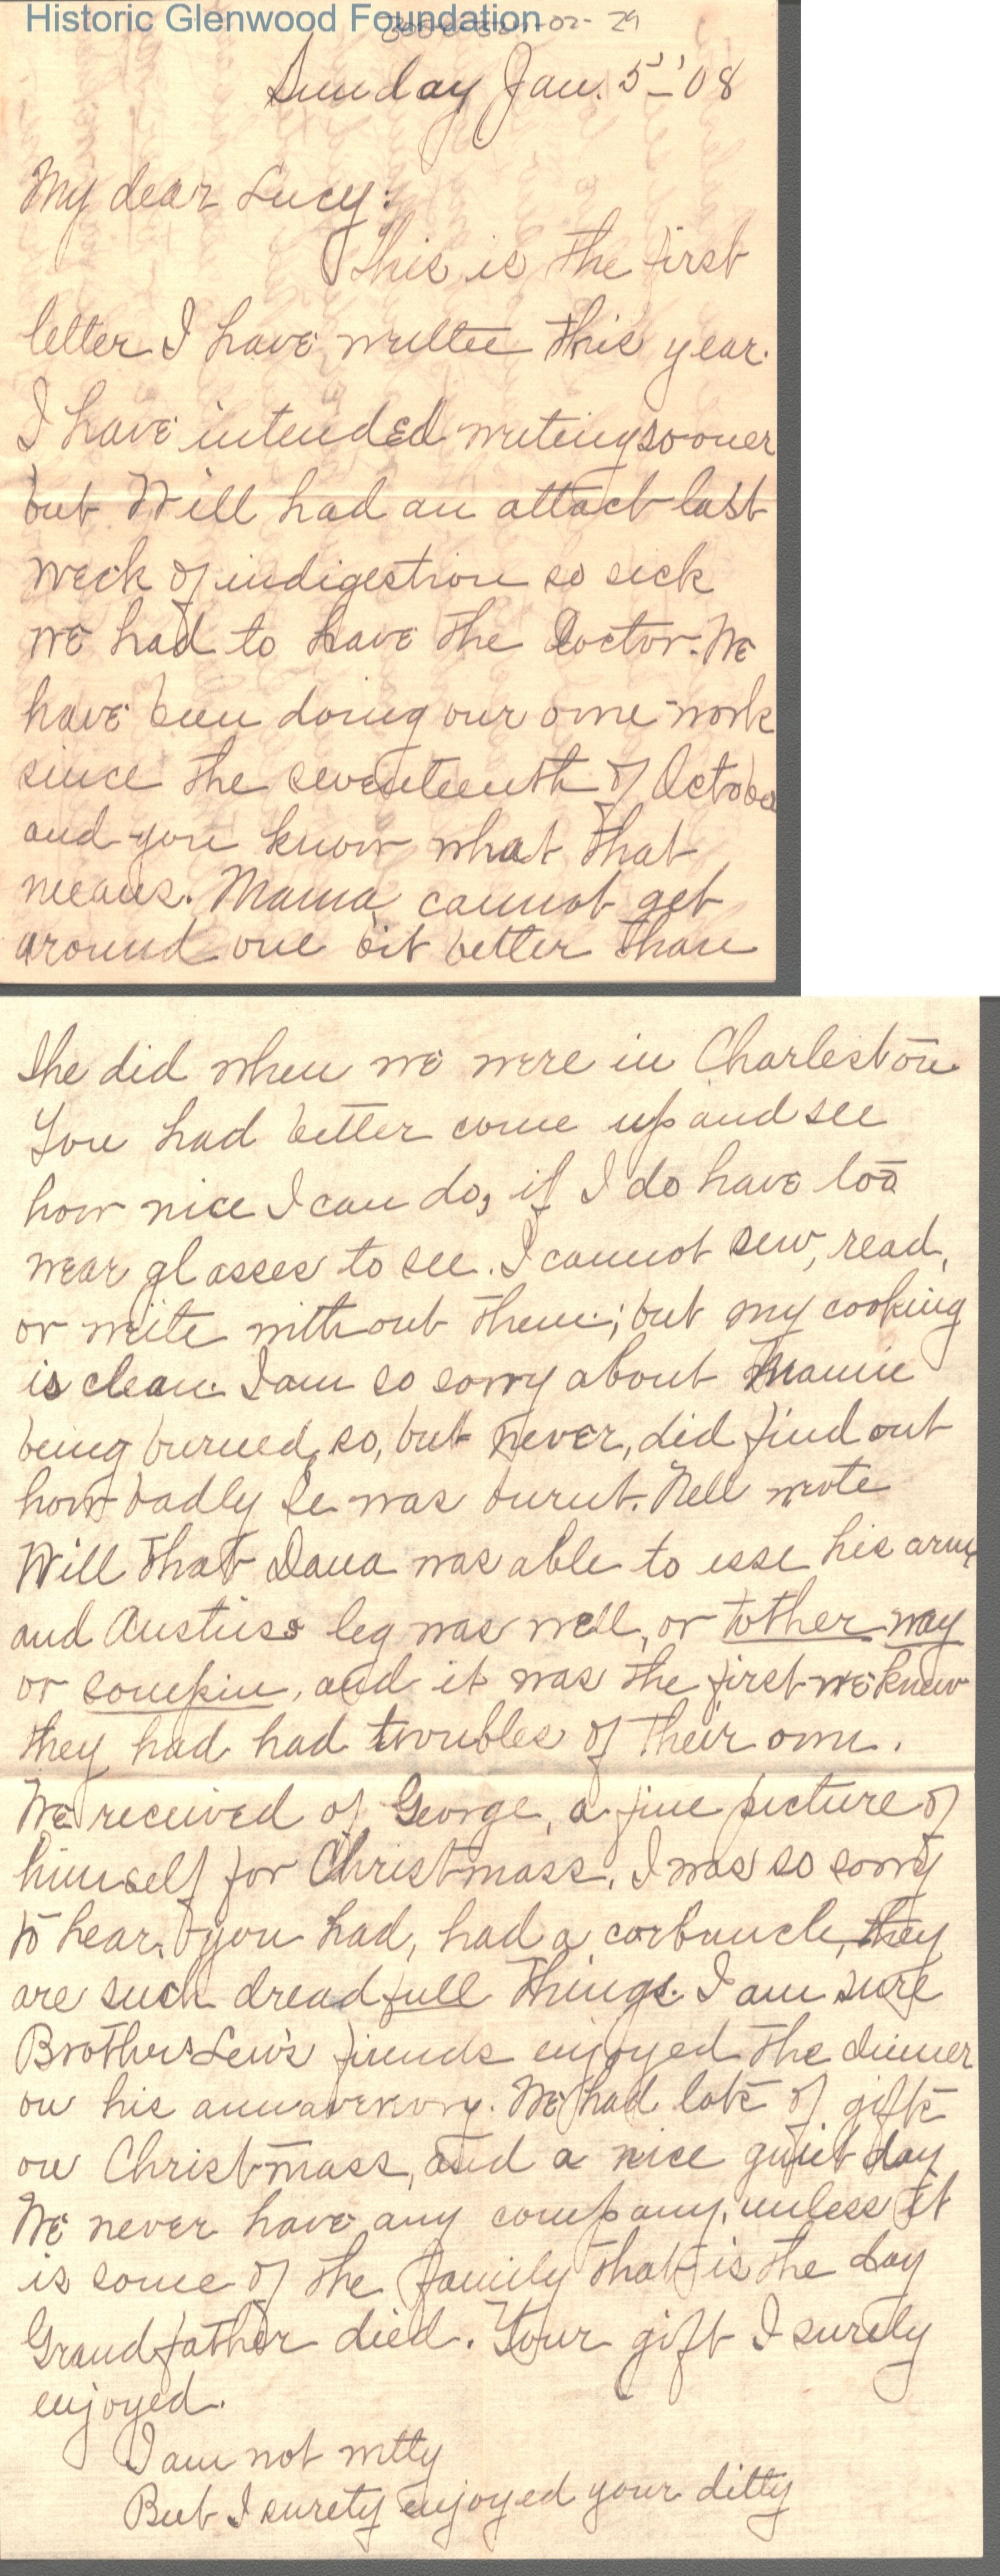 Historic Glenwood Foundation
Sunday Jan. 5-'08
My dear Lucy:
This is the first
letter I have written this year.
I have intended writing sooner
but Will had an attact last
week of indigestion so sick
we had to have the Doctor. We
have been doing our owne work
since the seventeenth of October
and you know what that
means. Mama cannot get
around one bit better than
she did when we were in Charleston
You had better come up and see
how nice I can do, if I do have too
wear glasses to see. I cannot sew, read,
or write without them; but my cooking
is clean. I am so sorry about Mamie
being burned, so, but never, did find out
how badly se was burnt. Nell wrote
Will that Dana was able to use his arm
and Austins leg was well, or tother way
or sompin, and it was the first we knew
they had had troubles of their own.
We received of George, a fine picture of
himself for Christmass. I was so sorry
to hear, you had, had a carbuncle, they
are such dreadfull things. I am sure
Brother Lewis friends enjoyed the dinner
on his annaversory. We had lots of gifts
on Christmass, and a nice quiet day
We never have any company, unless it
is some of the family that is the day
Grandfather died. Your gift I surely
enjoyed.
I am not witty
But I surety enjoyed your ditty